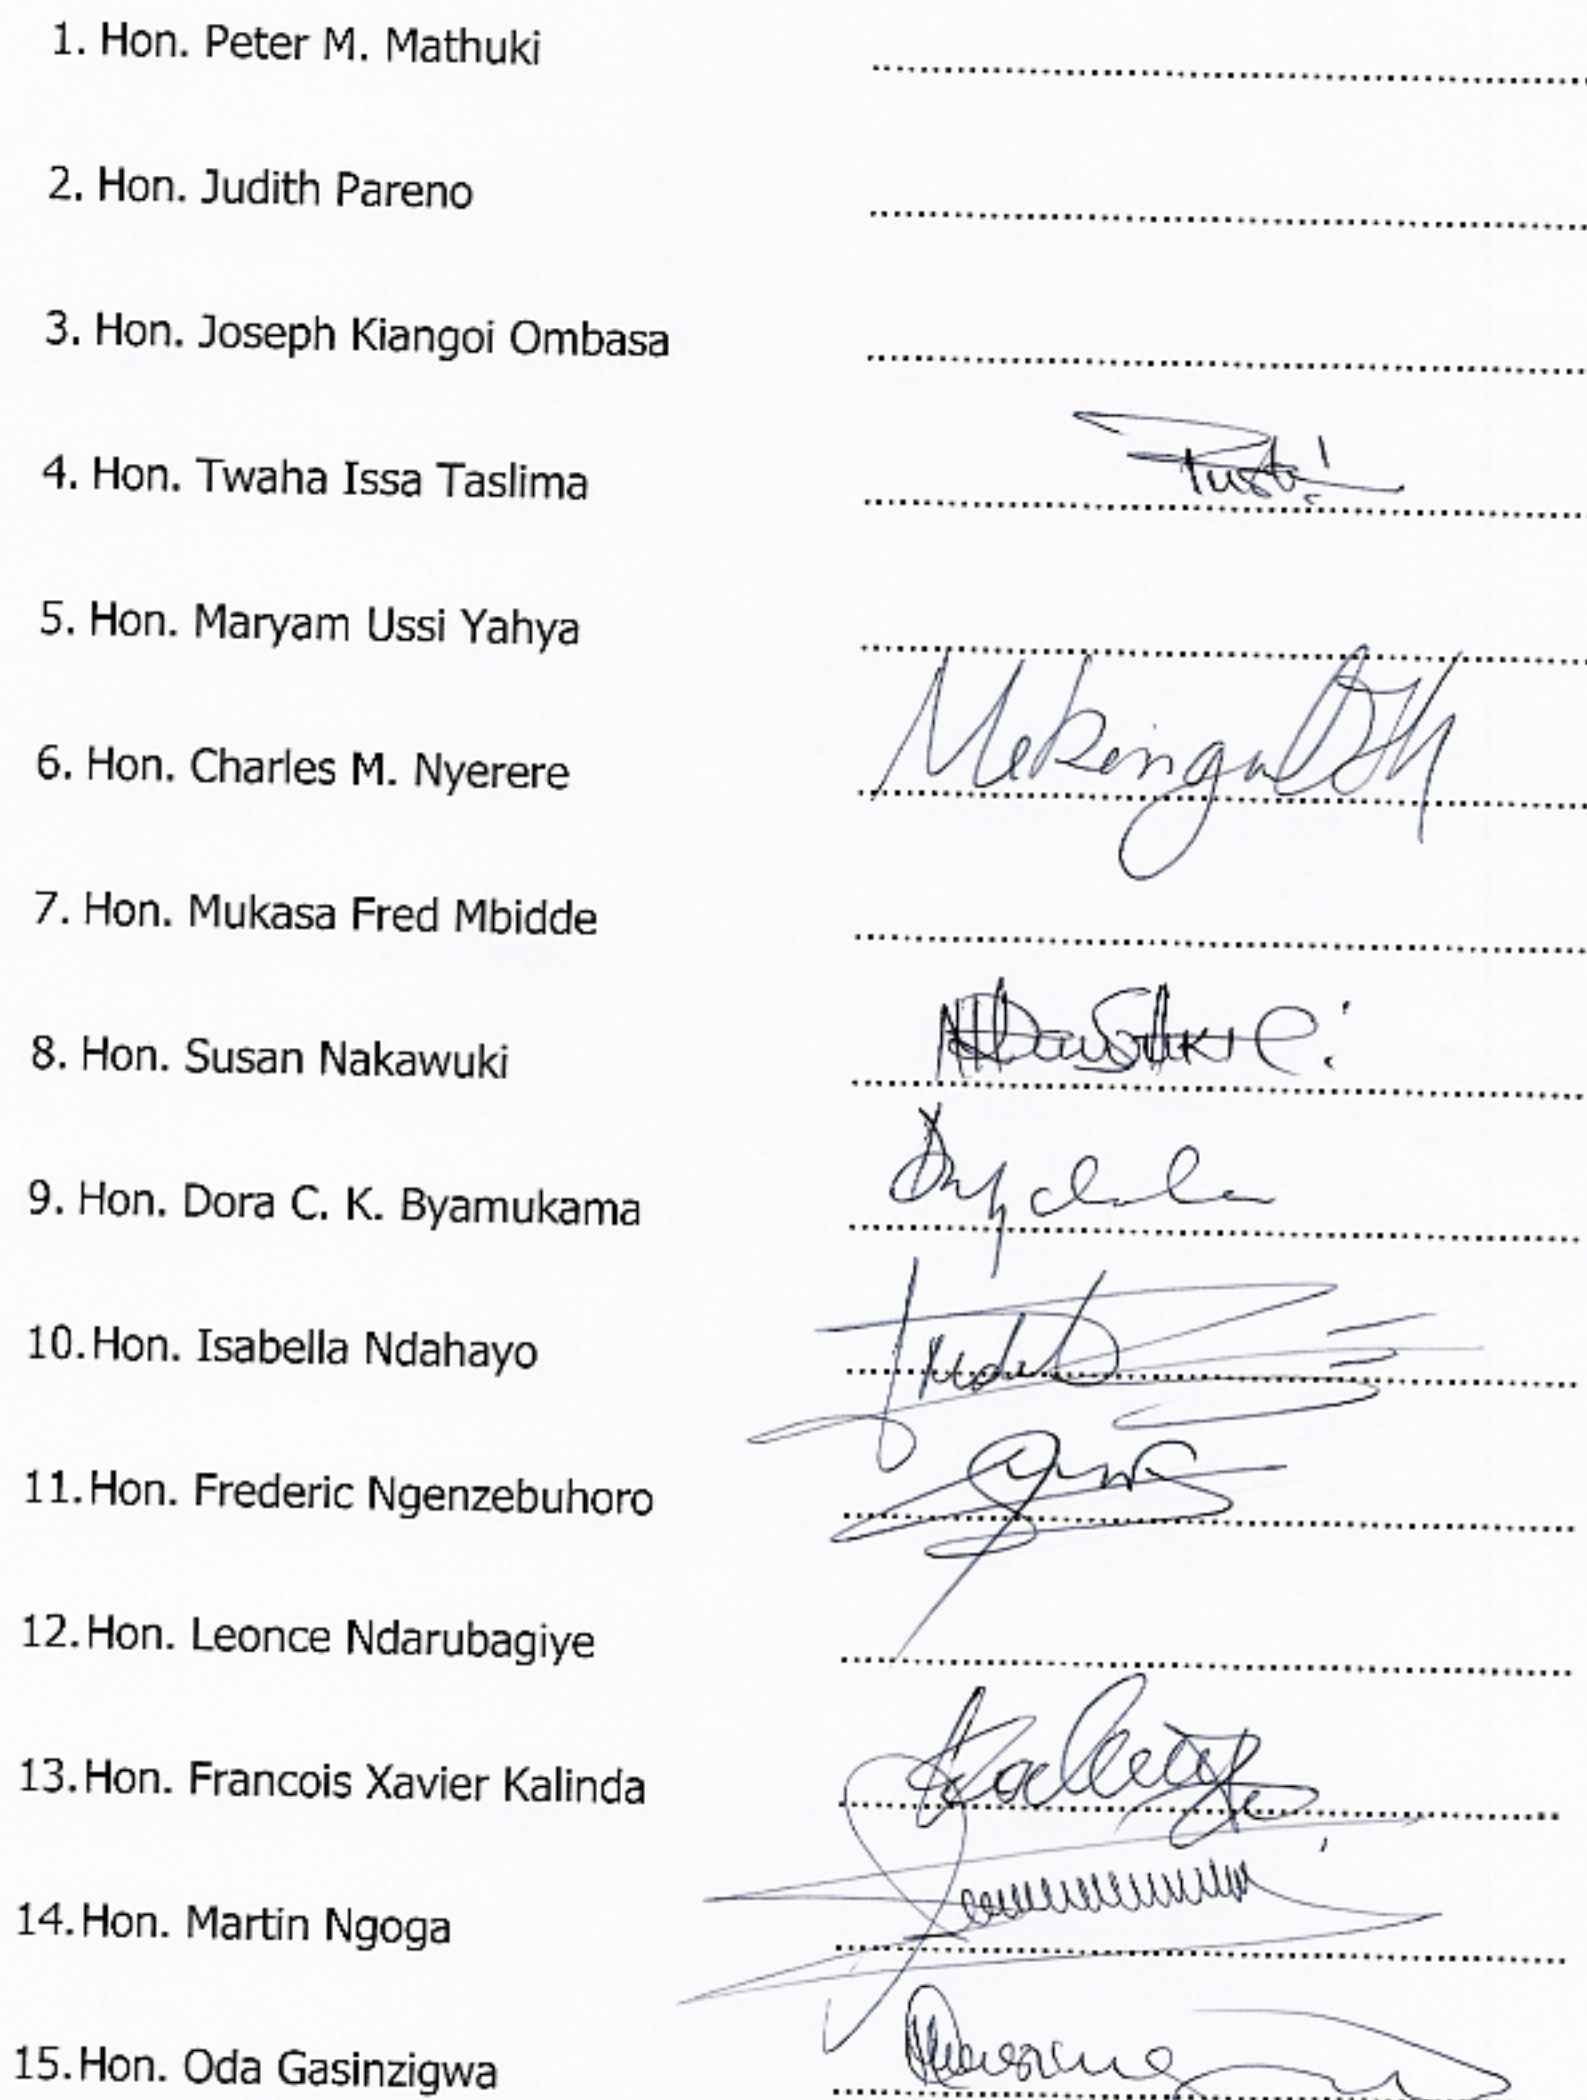 1. Hon. Peter M. Mathuki
2. Hon. Judith Pareno
3. Hon. Joseph Kiangoi Ombasa
4. Hon. Twaha Issa Taslima
5. Hon. Maryam Ussi Yahya
6. Hon. Charles M. Nyerere
7. Hon. Mukasa Fred Mbidde
8. Hon. Susan Nakawuki
9. Hon. Dora C. K. Byamukama
10.Hon. Isabella Ndahayo
11.Hon. Frederic Ngenzebuhoro
12.Hon. Leonce Ndarubagiye
13.Hon. Francois Xavier Kalinda
14.Hon. Martin Ngoga
15.Hon. Oda Gasinzigwa